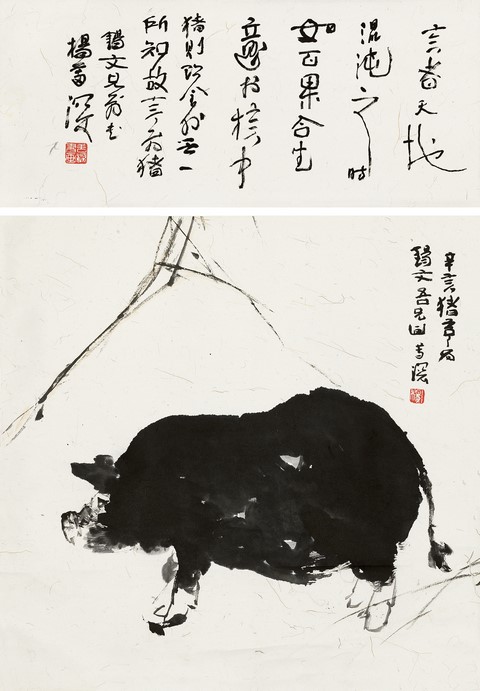 亥者天地
混沌之時
如百果含生
意於核中
猪則飽食外無一
所知故亥為猪
錫文兄翁
楊善深
辛亥猪
錫文吾兄画善深